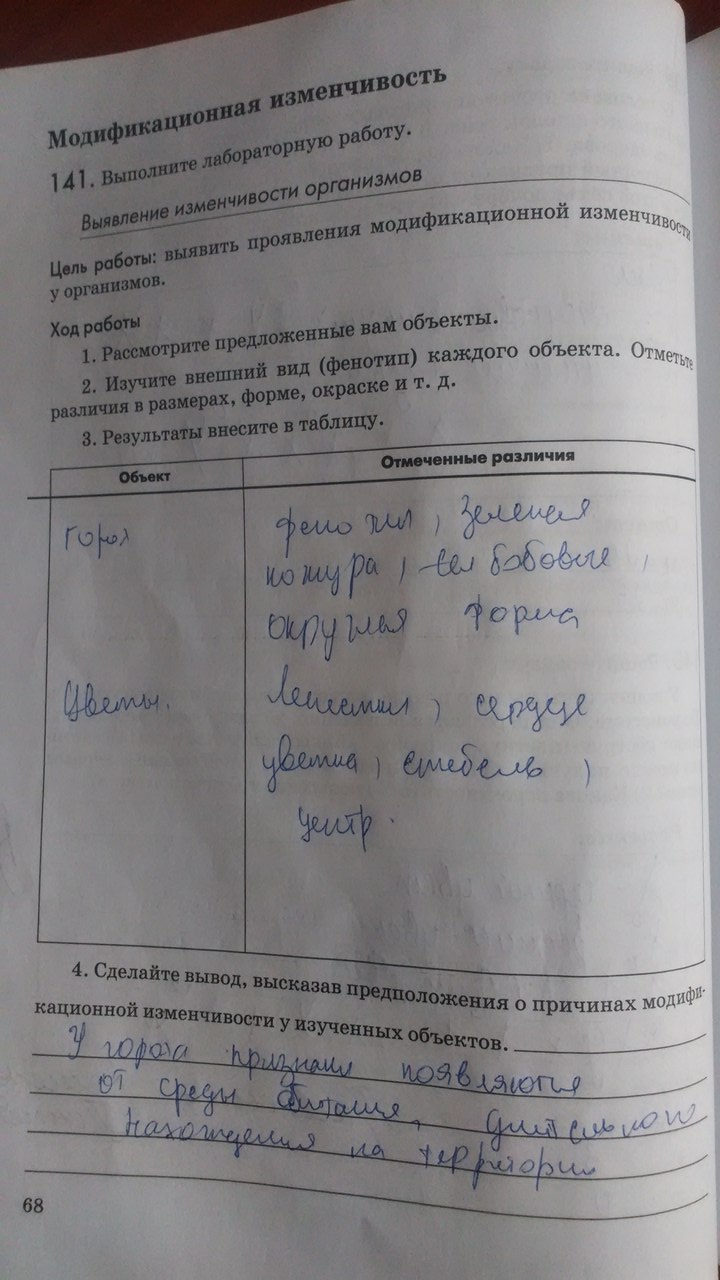 Модификационная изменчивость
141. Выполните лабораторную работу.
Выявление изменчивости организмов
Цель работы: выявить проявления модификационной изменчивости
у организмов.
Ход работы
1. Рассмотрите предложенные вам объекты.
2. Изучите внешний вид (фенотип) каждого объекта. Отметьте
различия в размерах, форме, окраске и т. д.
3. Результаты внесите в таблицу.
Объект
Отмеченные различия
Горох
фенотип, зеленая
кожура, бобовые,
округлая форма
Цветы.
Лепестки, сердце
цветка, стебель,
центр.
4. Сделайте вывод, высказав предположения о причинах модифи-
кационной изменчивости у изученных объектов.
У гороха признаки появляются
от среды обитания, длительного
нахождения на территории
68